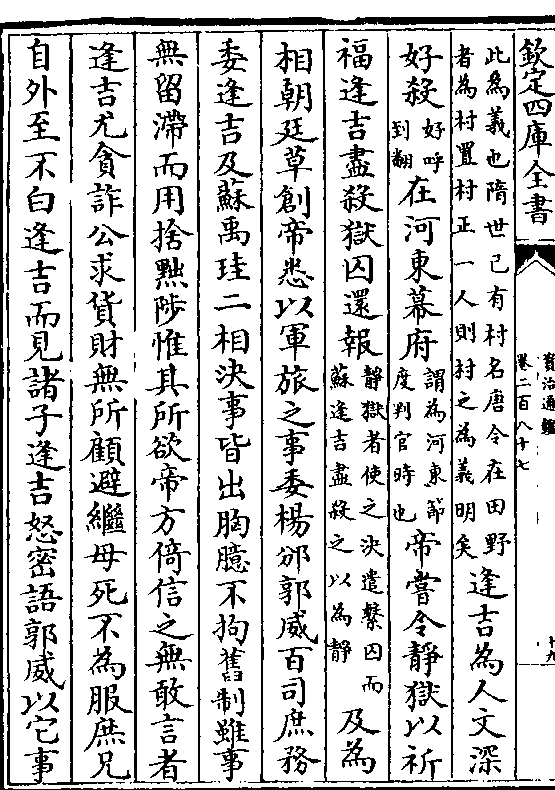 欽定四庫全書
資治通鑑
卷二百八十七
十九
此為義也隋世已有村名唐令在田野
者為村置村正一人則村之為義明矣
逢吉為人文深
好殺
好呼
到翻
在河東幕府
謂為河東節
度判官時也
帝嘗令靜獄以祈
福逢吉盡殺獄囚還報
靜獄者使之決遣繫囚而
蘇逢吉盡殺之以為靜
及為
相朝廷草創帝悉以軍旅之事委楊邠郭威百司庶務
委逢吉及蘇禹珪二相決事皆出胸臆不拘舊制雖事
無留滯而用捨黜陟惟其所欲帝方倚信之無敢言者
逢吉尤貪詐公求貨財無所顧避繼母死不為服庶兄
自外至不白逢吉而見諸子逢吉怒密語郭威以它事